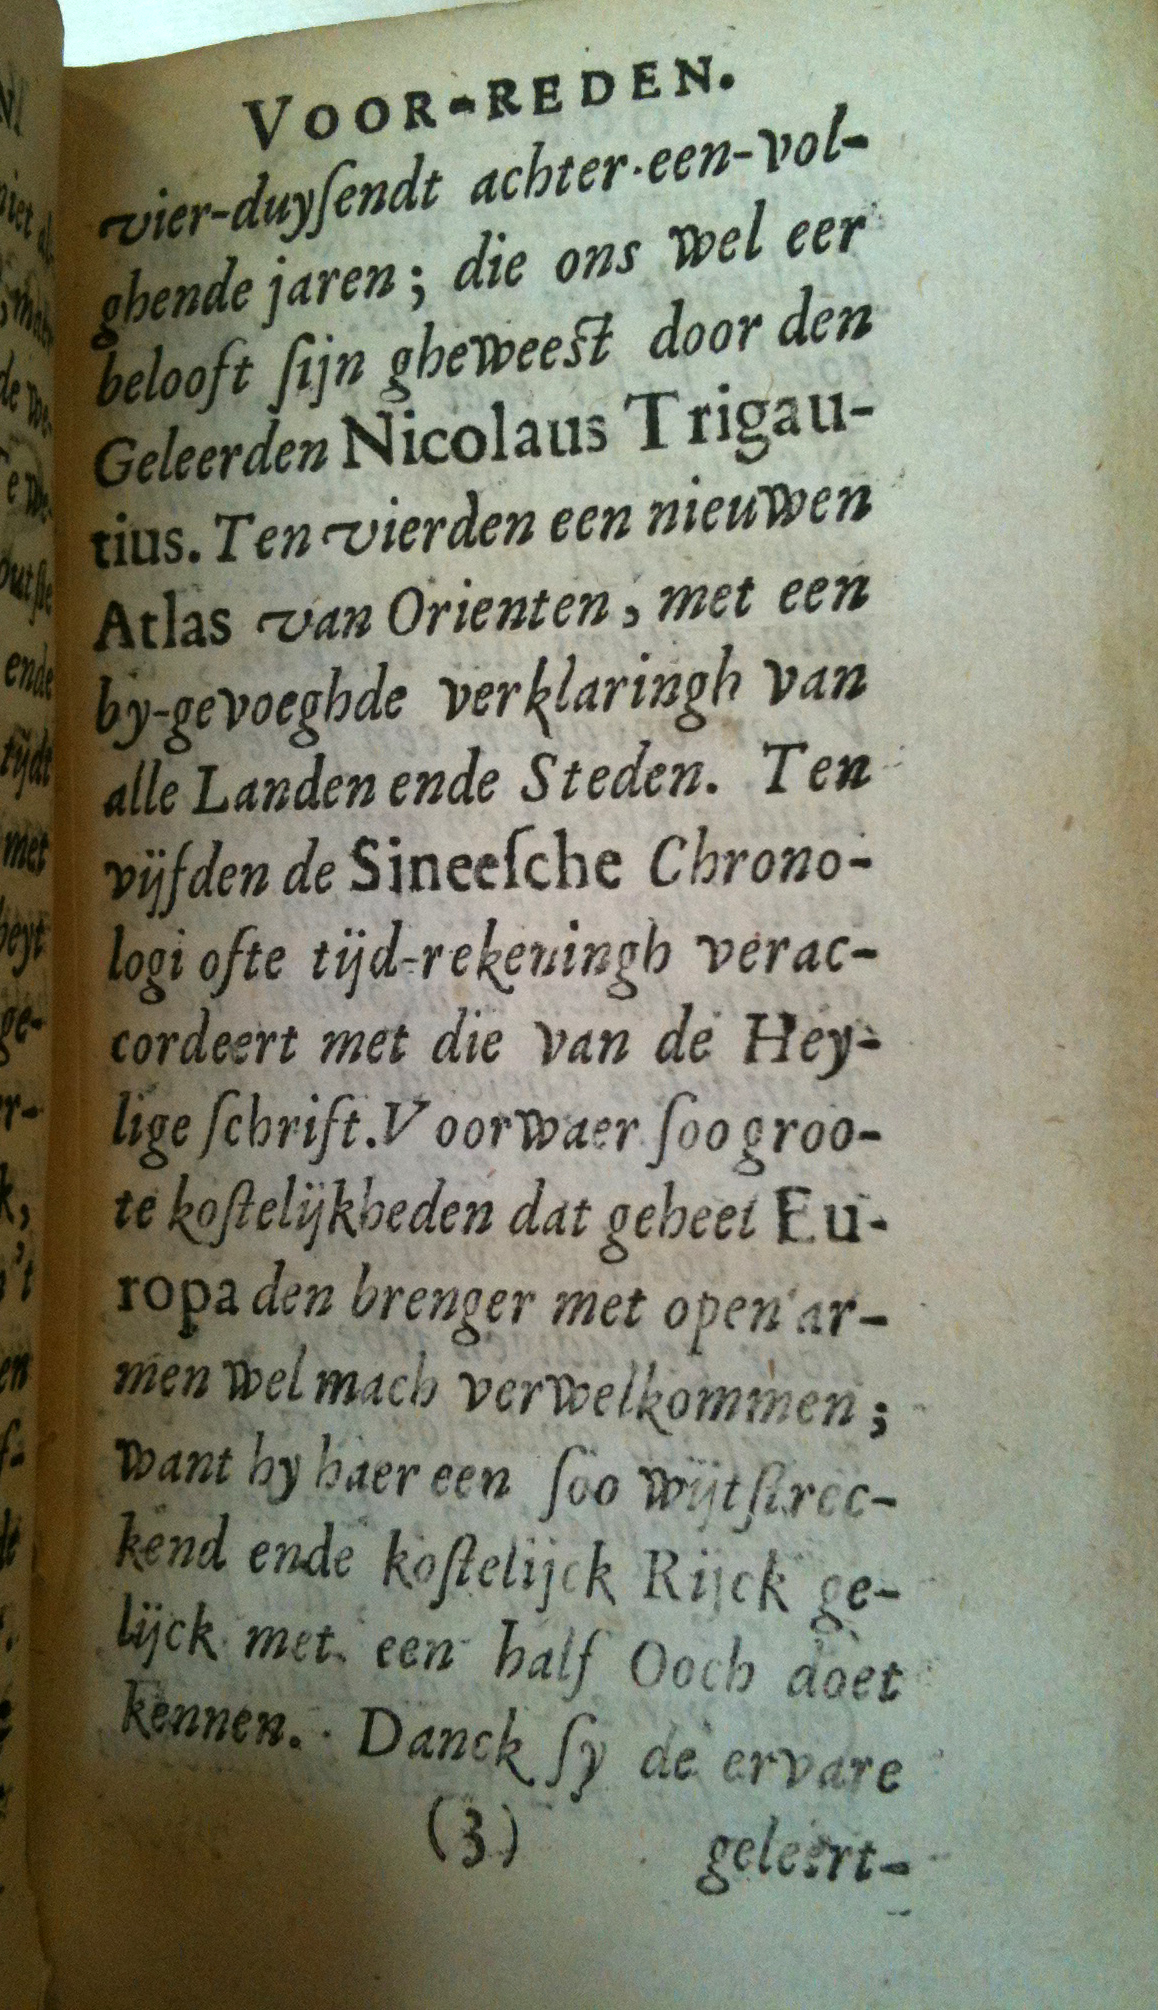 VOOR-REDEN.
vier-duyſendt achter-een-vol-
ghende jaren; die ons wel eer
belooft ſijn gheweest door den
Geleerden Nicolaus Trigau-
tius. Ten vierden een nieuwen
Atlas van Orienten, met een
by-gevoeghde verklaringh van
alle Landen ende Steden. Ten
vijfden de Sineeſche Chrono-
logi ofte tijd-rekeningh verac-
cordeert met die van de Hey-
lige ſchrift. Voorwaer ſoo groo-
te koſtelijkheden dat geheel Eu-
ropa den brenger met open ar-
men wel mach verwelkommen;
want hy haer een ſoo wijtſtrec-
kend ende koſtelijck Rijck ge-
lijck met een half Ooch doet
kennen. Danck ſy de ervare
(3) geleert-